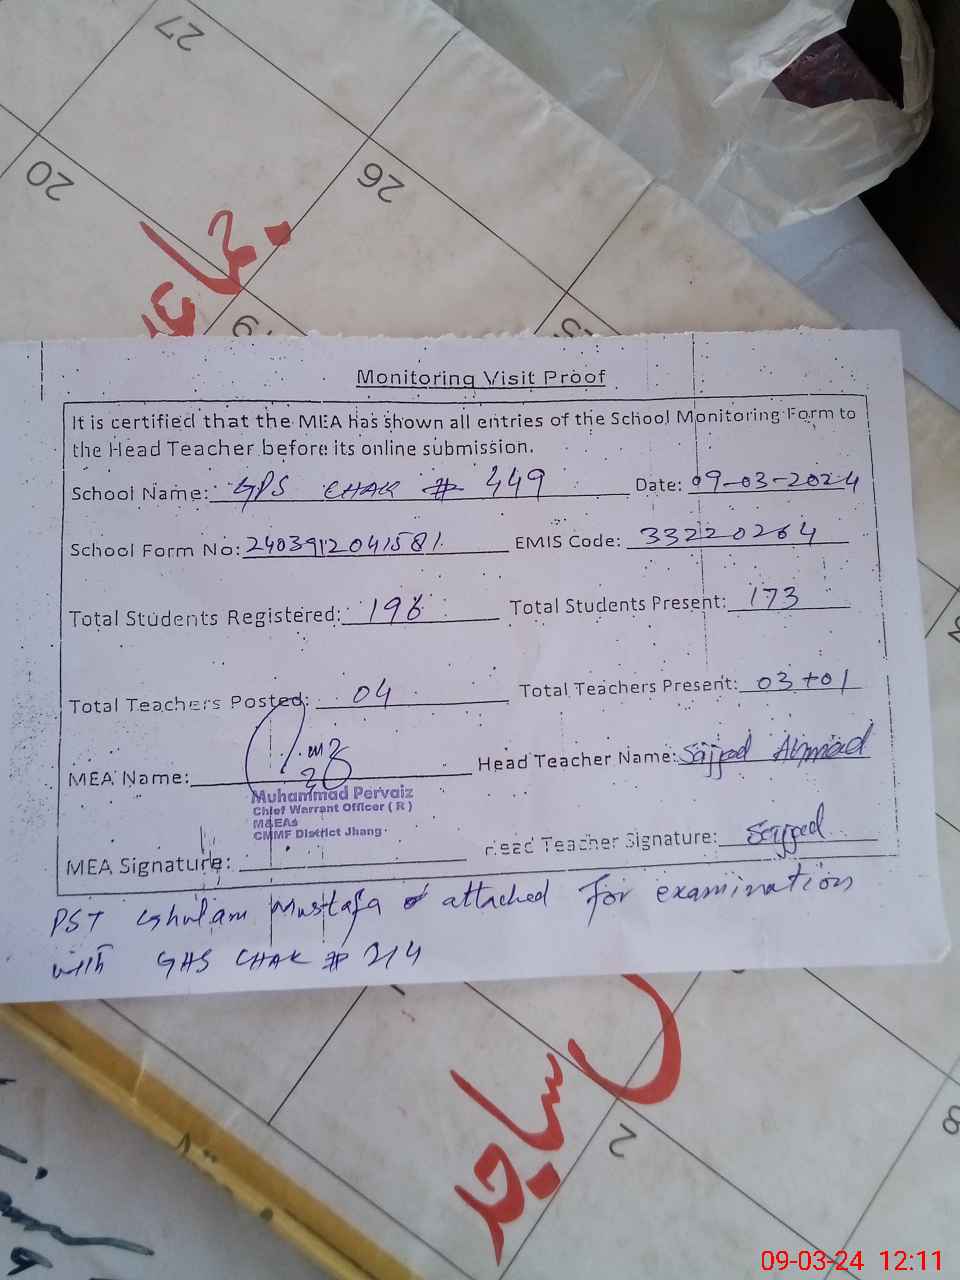 27
20
26
19
Monitoring Visit Proof
It is certified that the MEA has shown all entries of the School Monitoring Form to
the Head Teacher before its online submission.
School Name: GPS CHAK # 449 Date: 09-03-2024
School Form No: 2403912041581 EMIS Code: 33220264
Total Students Registered: 198 Total Students Present: 173
Total Teachers Posted: 04 Total Teachers Present: 03+01
MEA Name: Head Teacher Name: Sajjad Ahmad
Muhammad Pervaiz
Chief Warrant Officer ( R )
M&EAs
CMMF District Jhang
MEA Signature: Head Teacher Signature: Sajjad
PST Ghulam Mustafa attached for examination
with GHS CHAK # 214
2
8
09-03-24 12:11